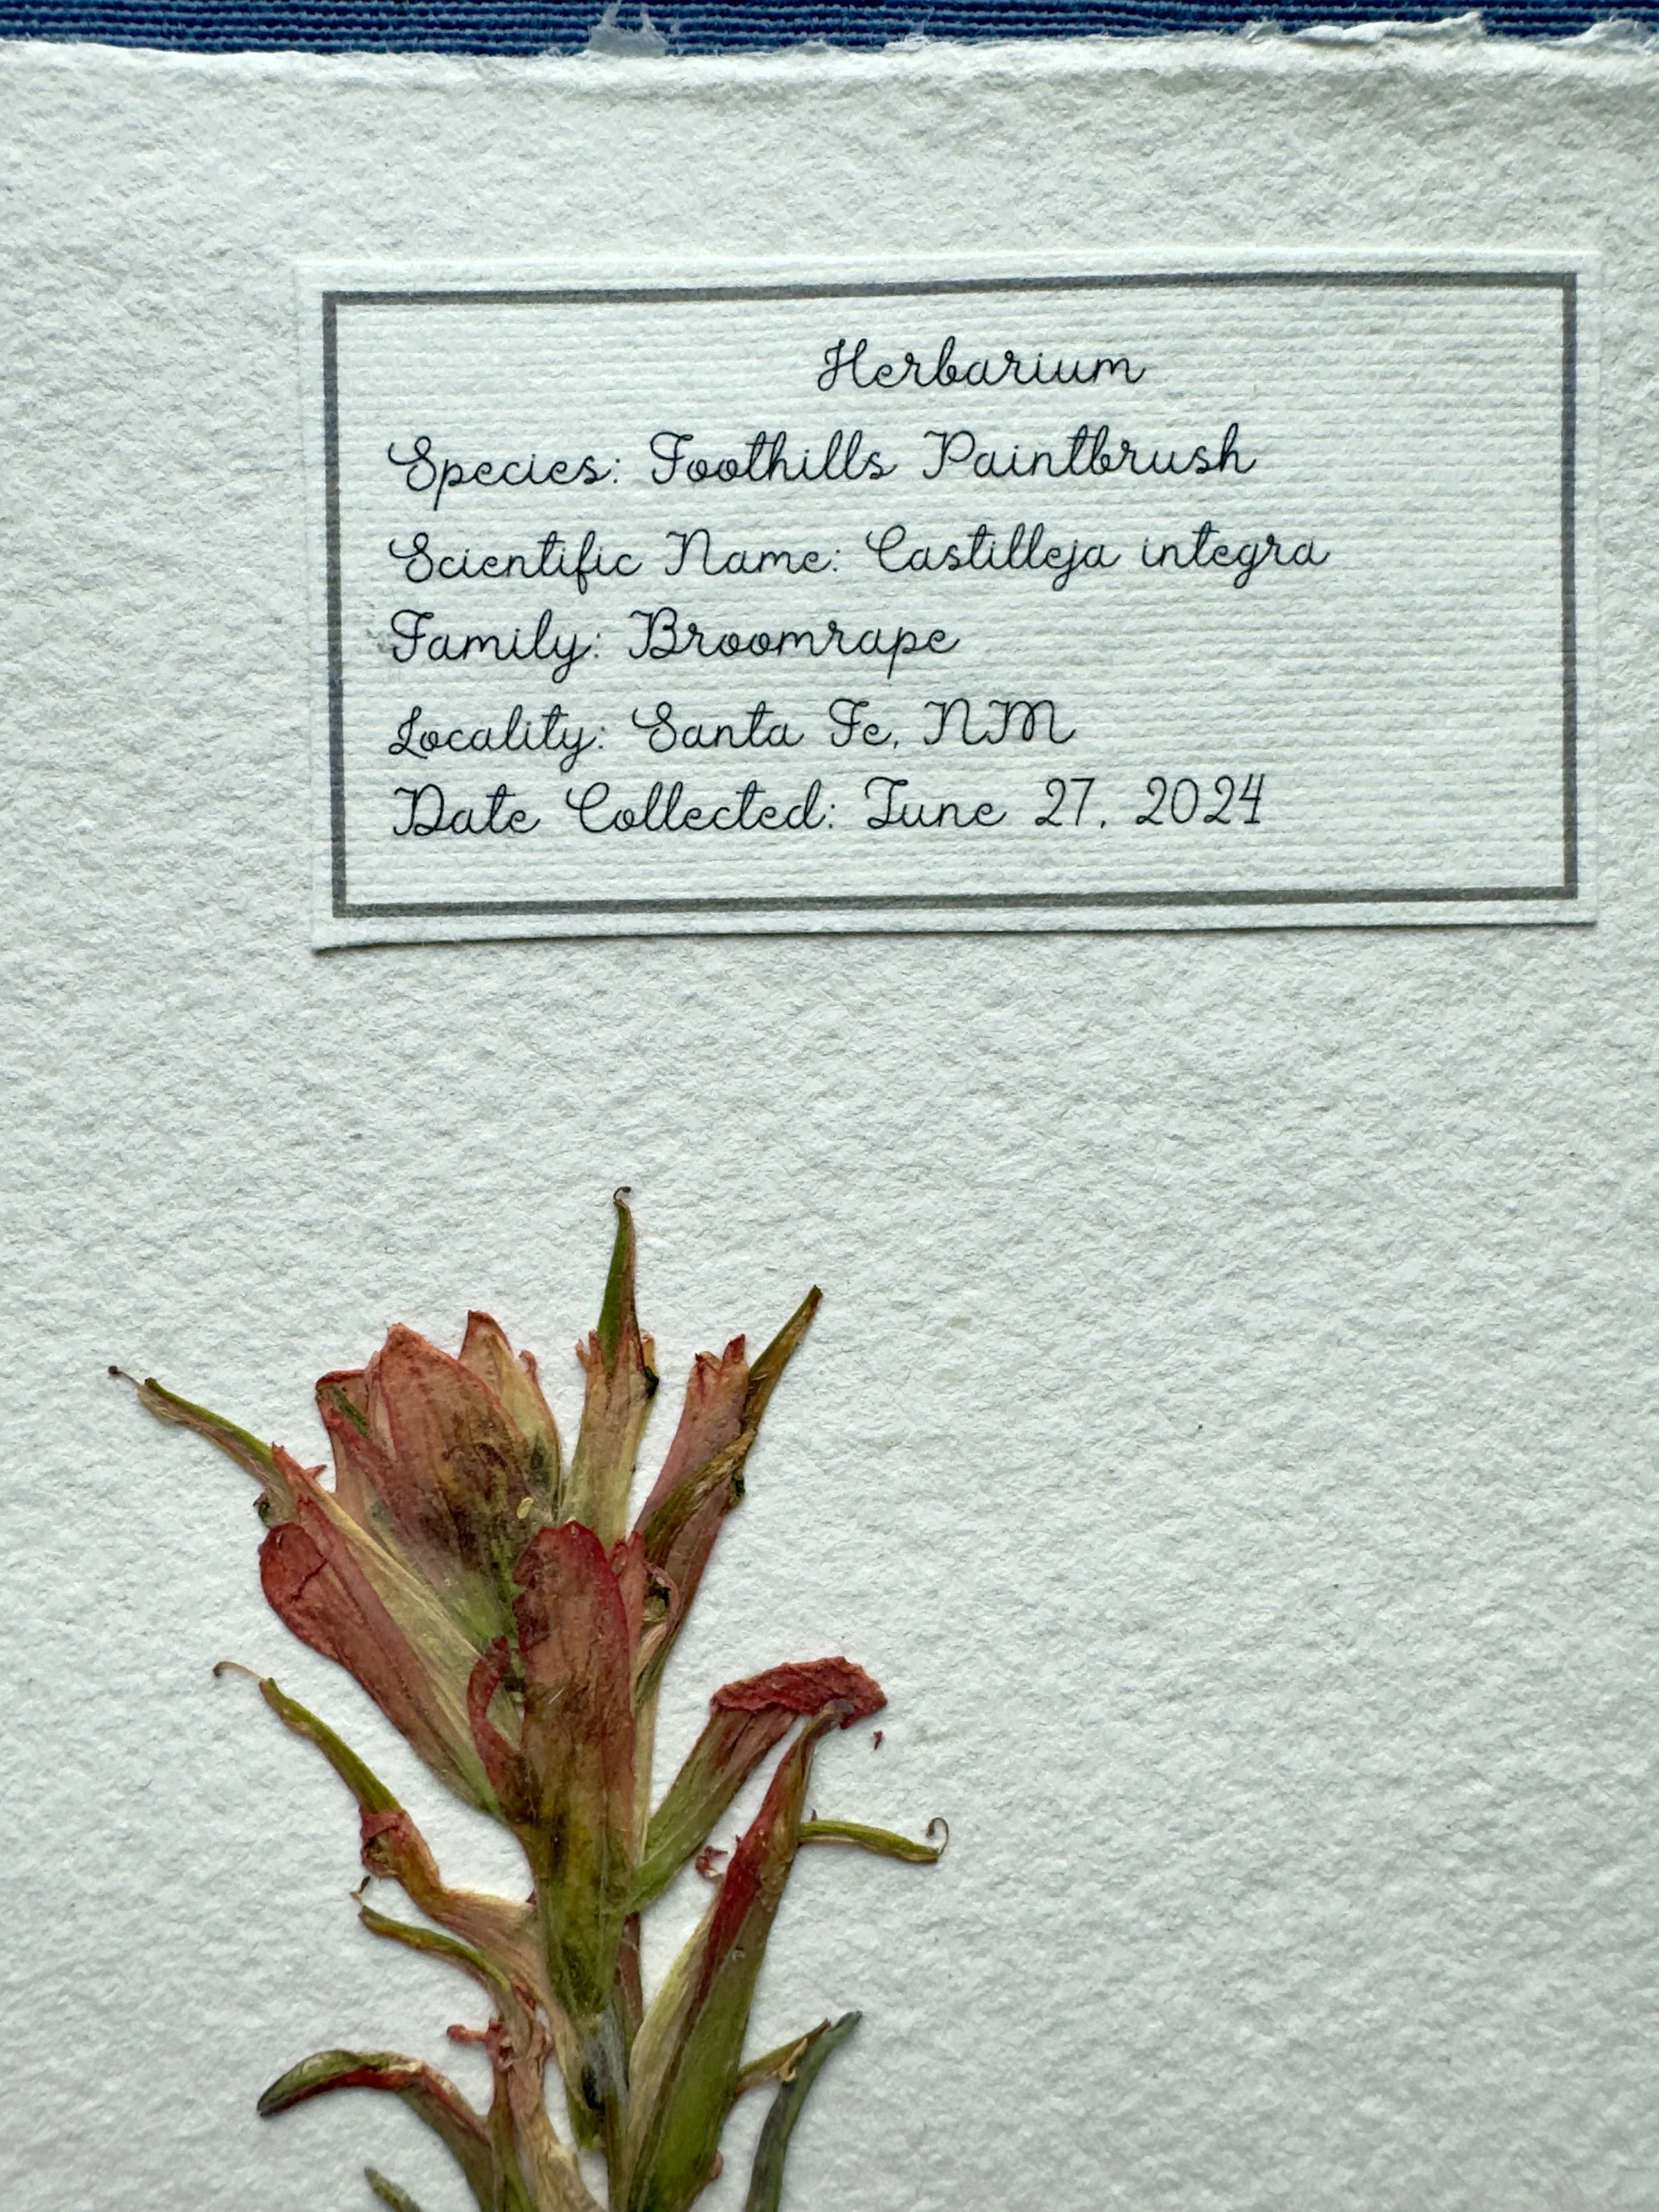 Herbarium
Species: Foothills Paintbrush
Scientific Name: Castilleja integra
Family: Broomrape
Locality: Santa Fe, NM
Date Collected: June 27, 2024